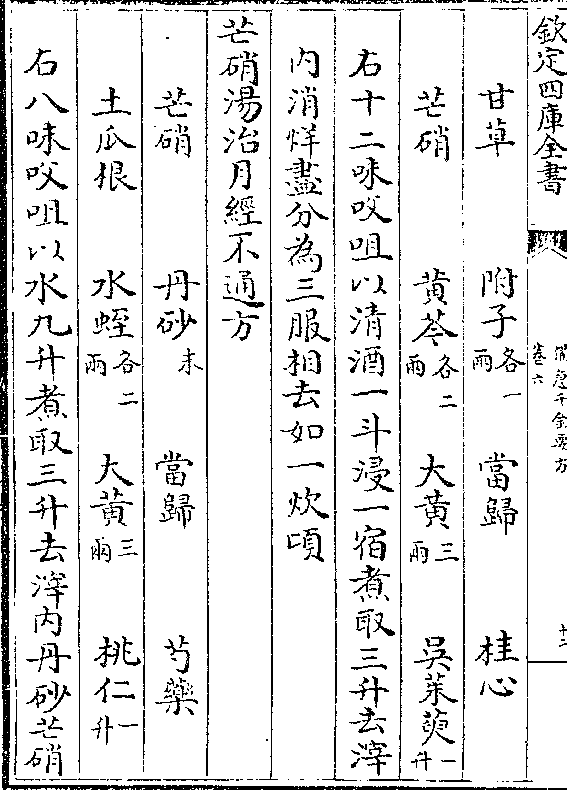 欽定四庫全書
備急千金要方
卷六
十二
甘草 附子各一兩 當歸 桂心
芒硝 黃芩各二兩 大黃三兩 吳茱萸一升
右十二味㕮咀以清酒一斗浸一宿煮取三升去滓
内消烊盡分為三服相去如一炊頃
芒硝湯治月經不通方
芒硝 丹砂末 當歸 芍藥
土瓜根 水蛭各二兩 大黃三兩 桃仁一升
右八味㕮咀以水九升煮取三升去滓内丹砂芒硝